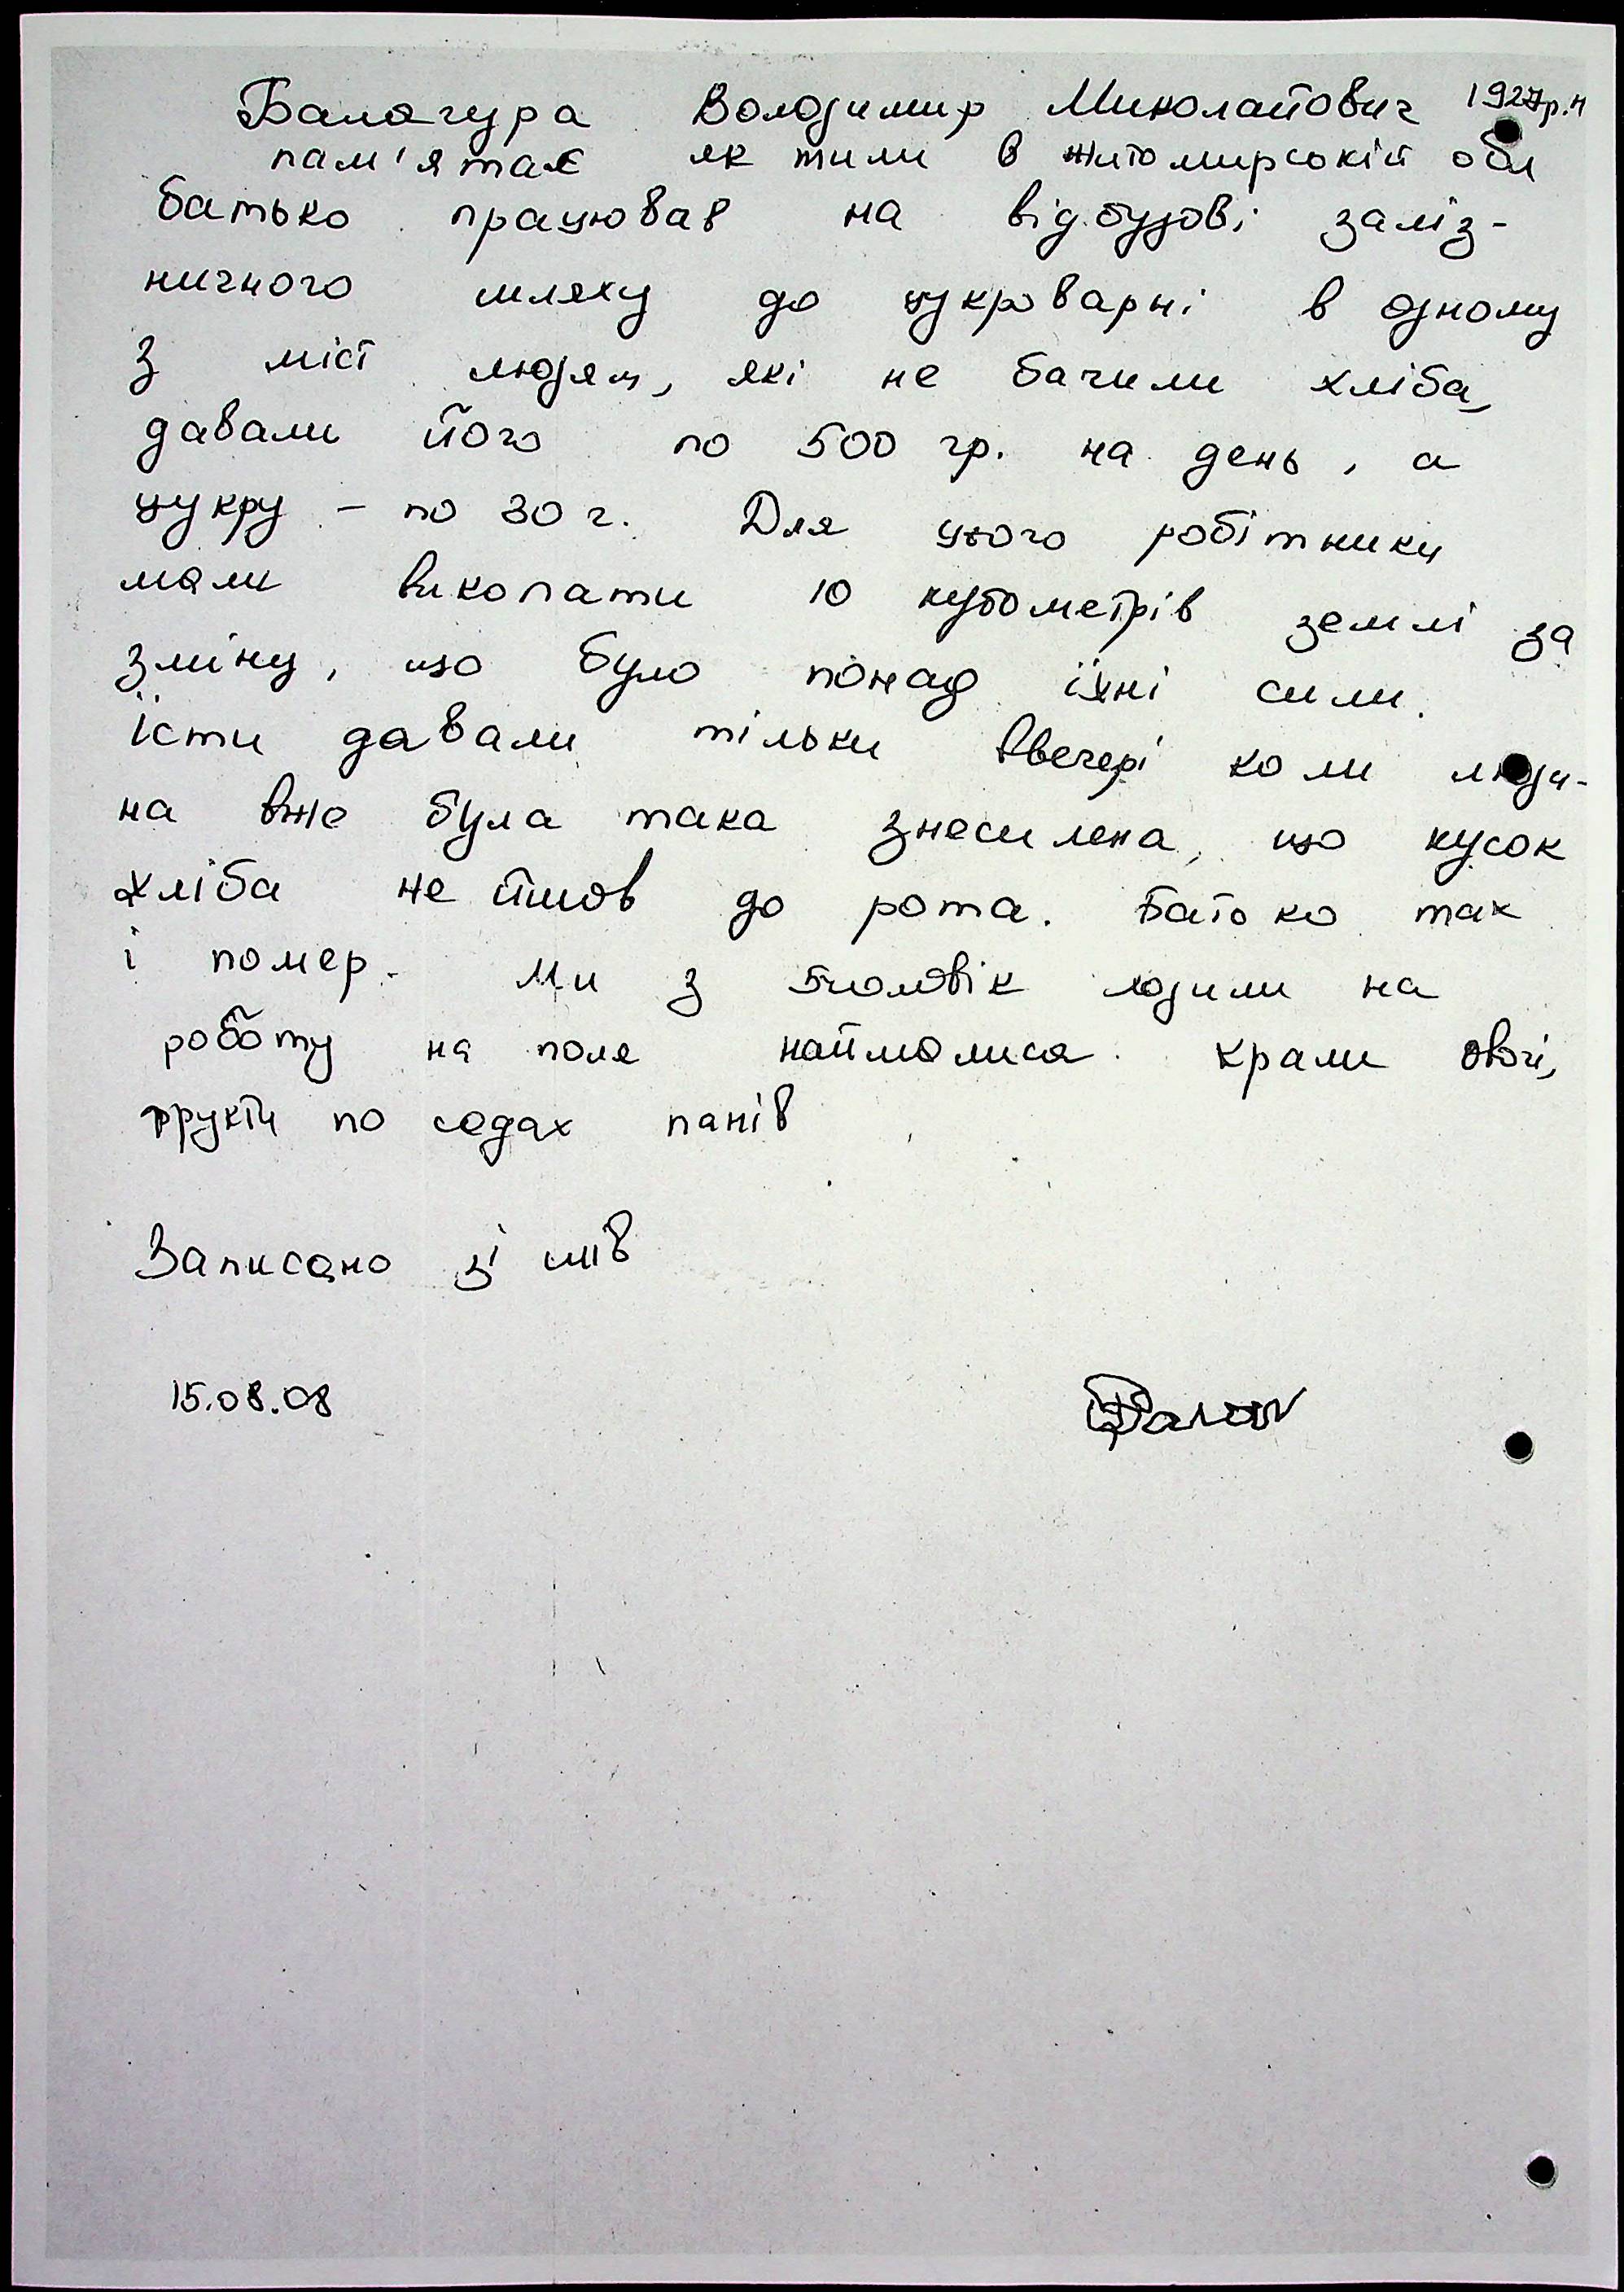 Балагура Володимир Миколайович 1927р.н
пам'ятає як жили в житомирській обл
батько працював на відбудові заліз-
ничного шляху до цукроварні в одному
з міст людям, які не бачили хліба,
давали його по 500 гр. на день, а
цукру - по 30 г. Для цього робітники
мали викопати 10 кубометрів землі за
зміну, що було понад їхні сили.
їсти давали тільки ввечері коли люди-
на вже була така знесилена, що кусок
хліба не йшов до рота. Батько так
і помер. Ми з 5 чоловік ходили на
роботу на поля наймалися. крали овочі,
фрукти по садах панів
Записано зі слів
15.08.08